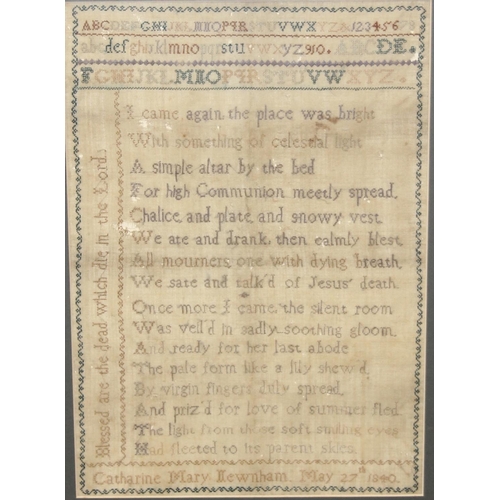 ABCDEFGHIJKLMNOPQRSTUVWXYZ 123456
abcdefghijklmnopqrstuvwxyz 910. ABCDE.
FGHIJKLMNOPQRSTUVWXYZ.
I came again the place was bright
With something of celestial light
A simple altar by the bed
For high Communion meetly spread,
Chalice and plate and snowy vest
We ate and drank, then calmly blest
All mourners one with dying breath,
We sate and talk'd of Jesus' death.
Once more I came, the silent room
Was veil'd in sadly soothing gloom
And ready for her last abode
The pale form like a lily shew'd
By virgin fingers duly spread,
And priz'd for love of summer fled
The light from those soft smiling eyes
Had fleeted to its parent skies.
Blessed are the dead which die in the Lord.
Catharine Mary Newnham. May 22nd 1840.